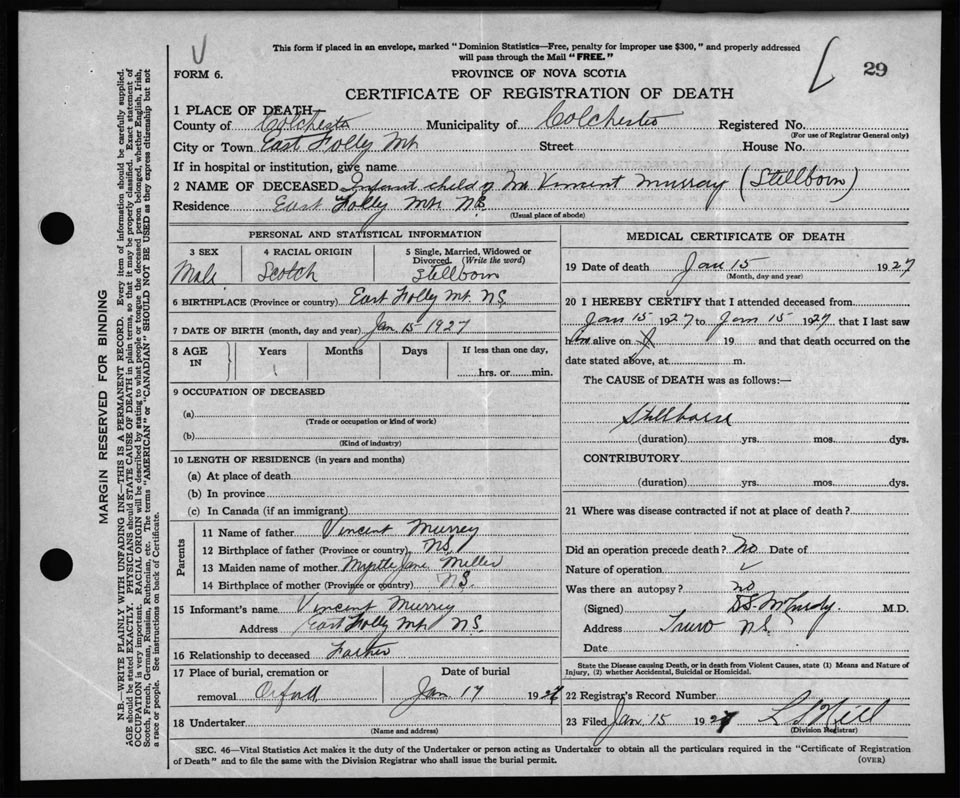 This form if placed in an envelope, marked "Dominion Statistics—Free, penalty for improper use $300," and properly addressed
will pass through the Mail "FREE."
29
FORM 6.
PROVINCE OF NOVA SCOTIA
CERTIFICATE OF REGISTRATION OF DEATH
1 PLACE OF DEATH—
County of Colchester Municipality of Colchester Registered No.
(For use of Registrar General only)
City or Town East Folly Mt. Street House No.
If in hospital or institution, give name
2 NAME OF DECEASED Infant child of Mr Vincent Murray (Stillborn)
Residence East Folly Mt. N.S.
(Usual place of abode)
PERSONAL AND STATISTICAL INFORMATION
3 SEX 4 RACIAL ORIGIN 5 Single, Married, Widowed or
Divorced. (Write the word)
Male Scotch Stillborn
6 BIRTHPLACE (Province or country) East Folly Mt. N.S.
7 DATE OF BIRTH (month, day and year) Jan 15-1927
8 AGE Years Months Days If less than one day,
IN
hrs. or min.
9 OCCUPATION OF DECEASED
(a)
(Trade or occupation or kind of work)
(b)
(Kind of industry)
10 LENGTH OF RESIDENCE (in years and months)
(a) At place of death
(b) In province
(c) In Canada (if an immigrant)
Parents
11 Name of father Vincent Murrey
12 Birthplace of father (Province or country) N.S.
13 Maiden name of mother Myrtle Jane Miller
14 Birthplace of mother (Province or country) N.S.
15 Informant's name Vincent Murrey
Address East Folly Mt. N.S.
16 Relationship to deceased Father
17 Place of burial, cremation or Date of burial
removal Oxford Jan. 17 1927
18 Undertaker
(Name and address)
MEDICAL CERTIFICATE OF DEATH
19 Date of death Jan 15 1927
(Month, day and year)
20 I HEREBY CERTIFY that I attended deceased from
Jan 15 1927 to Jan 15 1927 that I last saw
him alive on 19 and that death occurred on the
date stated above, at m.
The CAUSE of DEATH was as follows:—
Stillborn
(duration) yrs. mos. dys.
CONTRIBUTORY
(duration) yrs. mos. dys.
21 Where was disease contracted if not at place of death?
Did an operation precede death? No Date of
Nature of operation
Was there an autopsy? no
(Signed) McCurdy M.D.
Address Truro N.S.
Date
State the Disease causing Death, or in death from Violent Causes, state (1) Means and Nature of
Injury, (2) whether Accidental, Suicidal or Homicidal.
22 Registrar's Record Number
23 Filed Jan. 15 1927 Hill
(Division Registrar)
SEC. 46—Vital Statistics Act makes it the duty of the Undertaker or person acting as Undertaker to obtain all the particulars required in the "Certificate of Registration
of Death" and to file the same with the Division Registrar who shall issue the burial permit. (OVER)
MARGIN RESERVED FOR BINDING
N.B.—WRITE PLAINLY WITH UNFADING INK—THIS IS A PERMANENT RECORD. Every item of information should be carefully supplied.
AGE should be stated EXACTLY. PHYSICIANS should STATE CAUSE OF DEATH in plain terms, so that it may be properly classified. Exact statement of
OCCUPATION is very important. RACIAL ORIGIN will be described by stating to what people or tongue the deceased person belonged, whether English, Irish,
Scotch, French, German, Russian, Ruthenian, etc. The terms "AMERICAN" or "CANADIAN" SHOULD NOT BE USED as they express citizenship but not
a race or people. See instructions on back of Certificate.